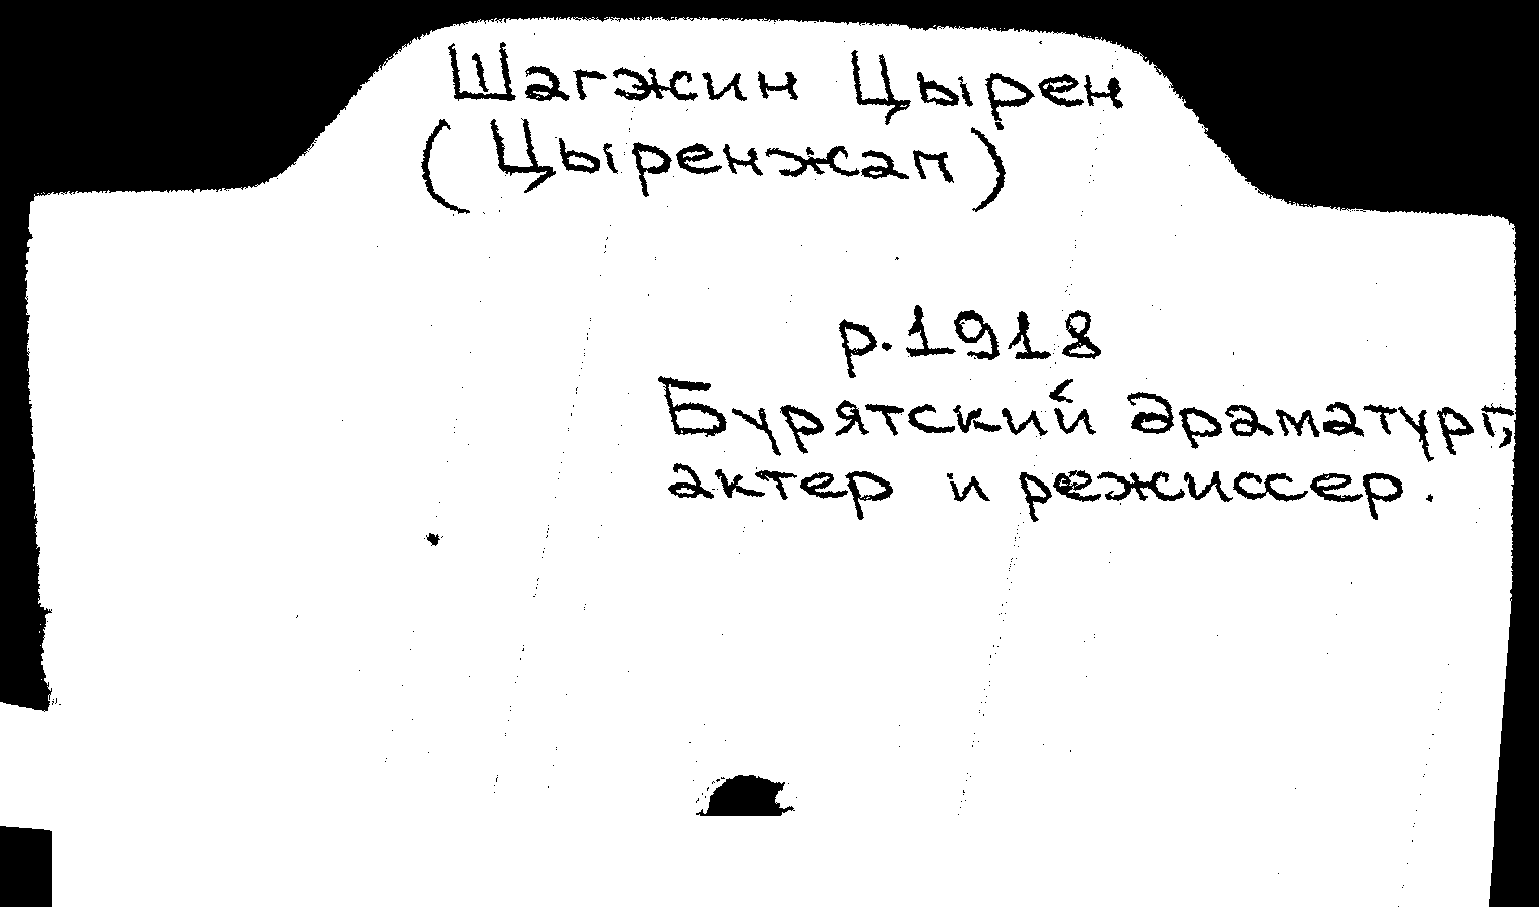 Шагжин Цырен
(Цыренжап)
р. 1918
Бурятский драматург,
актер и режиссер.